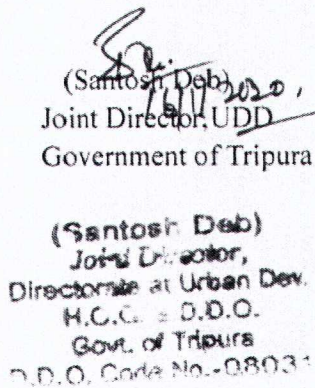 (Santosh Deb)
16/11/2020,
Joint Director, UDD
Government of Tripura
(Santosh Deb)
Joint Director,
Directorate at Urban Dev.
H.C.C. D.D.O.
Govt. of Tripura
D.D.O. Code No.-08031